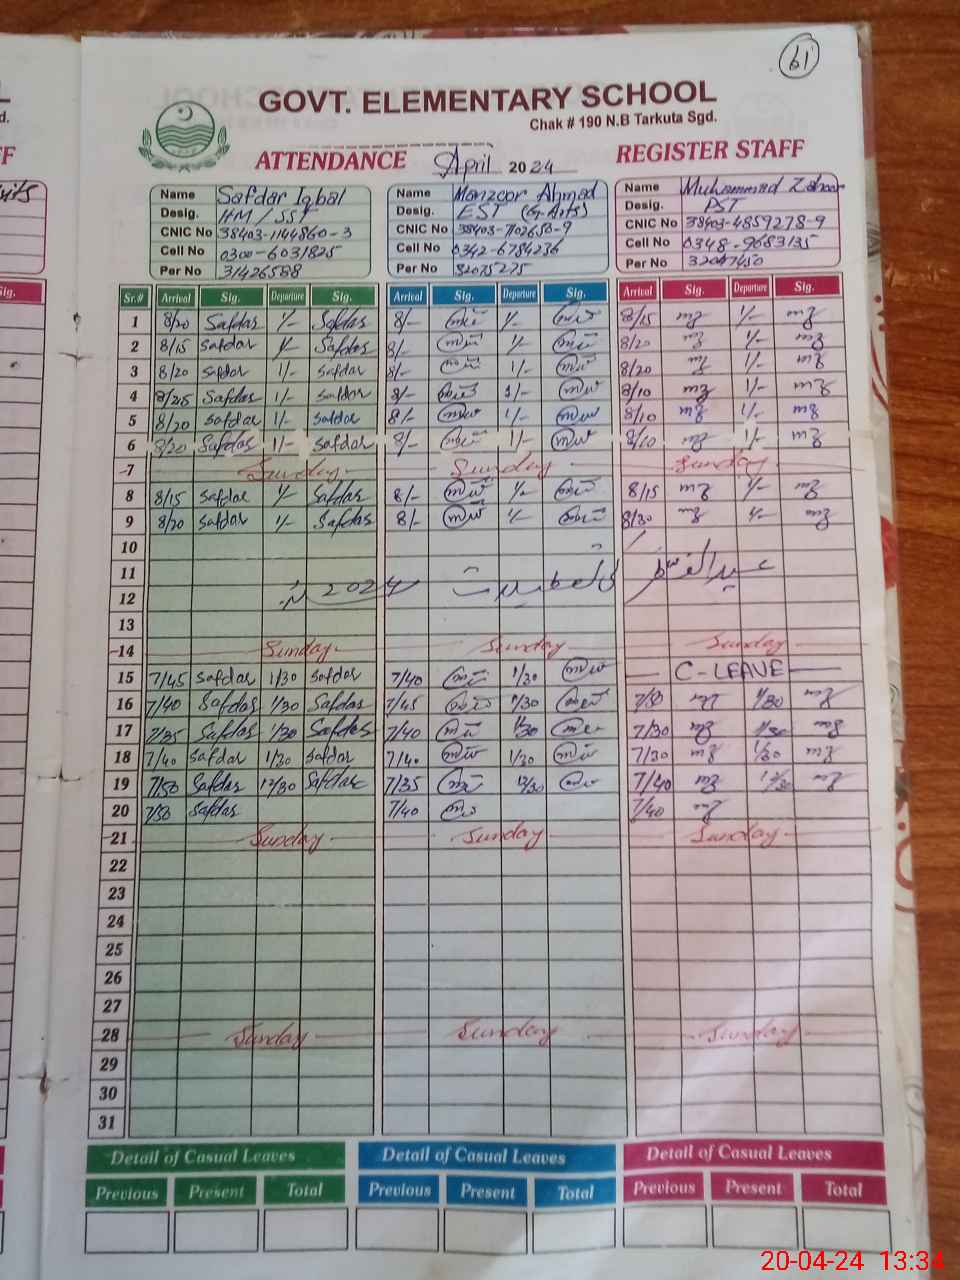 61
GOVT. ELEMENTARY SCHOOL
Chak # 190 N.B Tarkuta Sgd.
ATTENDANCE April 2024 REGISTER STAFF
Name Safdar Iqbal Name Manzoor Ahmad Name Muhammad Zaheer
Desig. HM / SST Desig. EST (G-Arts) Desig. PST
CNIC No 38403-1144860-3 CNIC No 38403-7102658-9 CNIC No 38403-4859278-9
Cell No 0300-6031825 Cell No 0342-6784236 Cell No 0348-9683135
Per No 31426588 Per No 32075275 Per No 32047450
Sr.# Arrival Sig. Departure Sig. Arrival Sig. Departure Sig. Arrival Sig. Departure Sig.
1 8/20 Safdar 1/- Safdar 8/- 1/- 8/15 1/-
2 8/15 Safdar 1/- Safdar 8/- 1/- 8/20 1/-
3 8/20 Safdar 1/- Safdar 8/- 1/- 8/20 1/-
4 Safdar 1/- Safdar 8/- 1/- 8/10 1/-
5 8/20 Safdar 1/- Safdar 8/- 1/- 8/10 1/-
6 8/20 Safdar 1/- Safdar 8/- 1/- 8/10 1/-
7 Sunday Sunday Sunday
8 8/15 Safdar 1/- Safdar 8/- 1/- 8/15 1/-
9 8/20 Safdar 1/- Safdar 8/- 1/- 8/30 1/-
10
11 عیدالفطر
12 2024
13
14 Sunday Sunday Sunday
15 7/45 Safdar 1/30 Safdar 7/40 1/30 C-LEAVE
16 7/40 Safdar 1/30 Safdar 7/45 1/30 7/50 1/30
17 7/35 Safdar 1/30 Safdar 7/40 1/30 7/30 1/30
18 7/40 Safdar 1/30 Safdar 7/40 1/30 7/30 1/30
19 7/50 Safdar 12/30 Safdar 7/35 12/30 7/40 12/30
20 7/50 Safdar 7/40 7/40
21 Sunday Sunday Sunday
22
23
24
25
26
27
28 Sunday Sunday Sunday
29
30
31
Detail of Casual Leaves Detail of Casual Leaves Detail of Casual Leaves
Previous Present Total Previous Present Total Previous Present Total
20-04-24 13:34